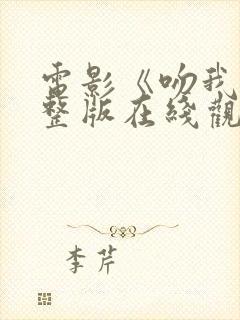 電影《吻我
整版在綫觀
李芹